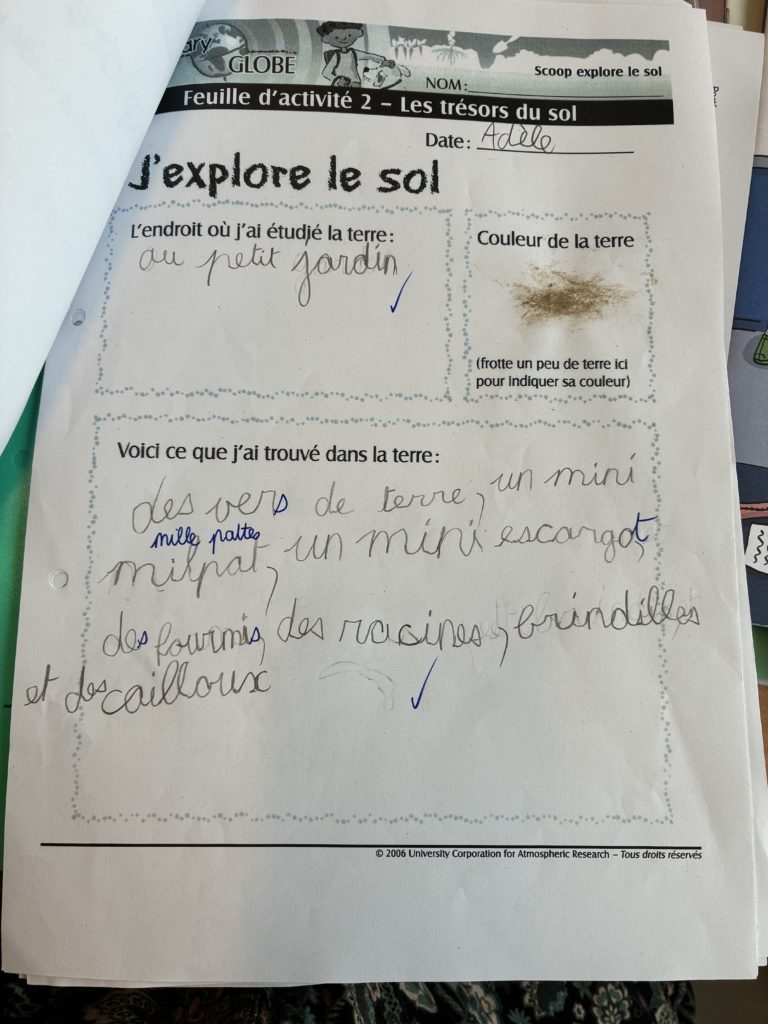 ary
GLOBE
Scoop explore le sol
NOM:
Feuille d'activité 2 – Les trésors du sol
Date: Adèle
J'explore le sol
L'endroit où j'ai étudjé la terre:
au petit jardin
Couleur de la terre
(frotte un peu de terre ici
pour indiquer sa couleur)
Voici ce que j'ai trouvé dans la terre:
des vers de terre, un mini
mille pattes
milpat, un mini escargot,
des fourmis, des racines, brindilles
et des cailloux
© 2006 University Corporation for Atmospheric Research – Tous droits réservés